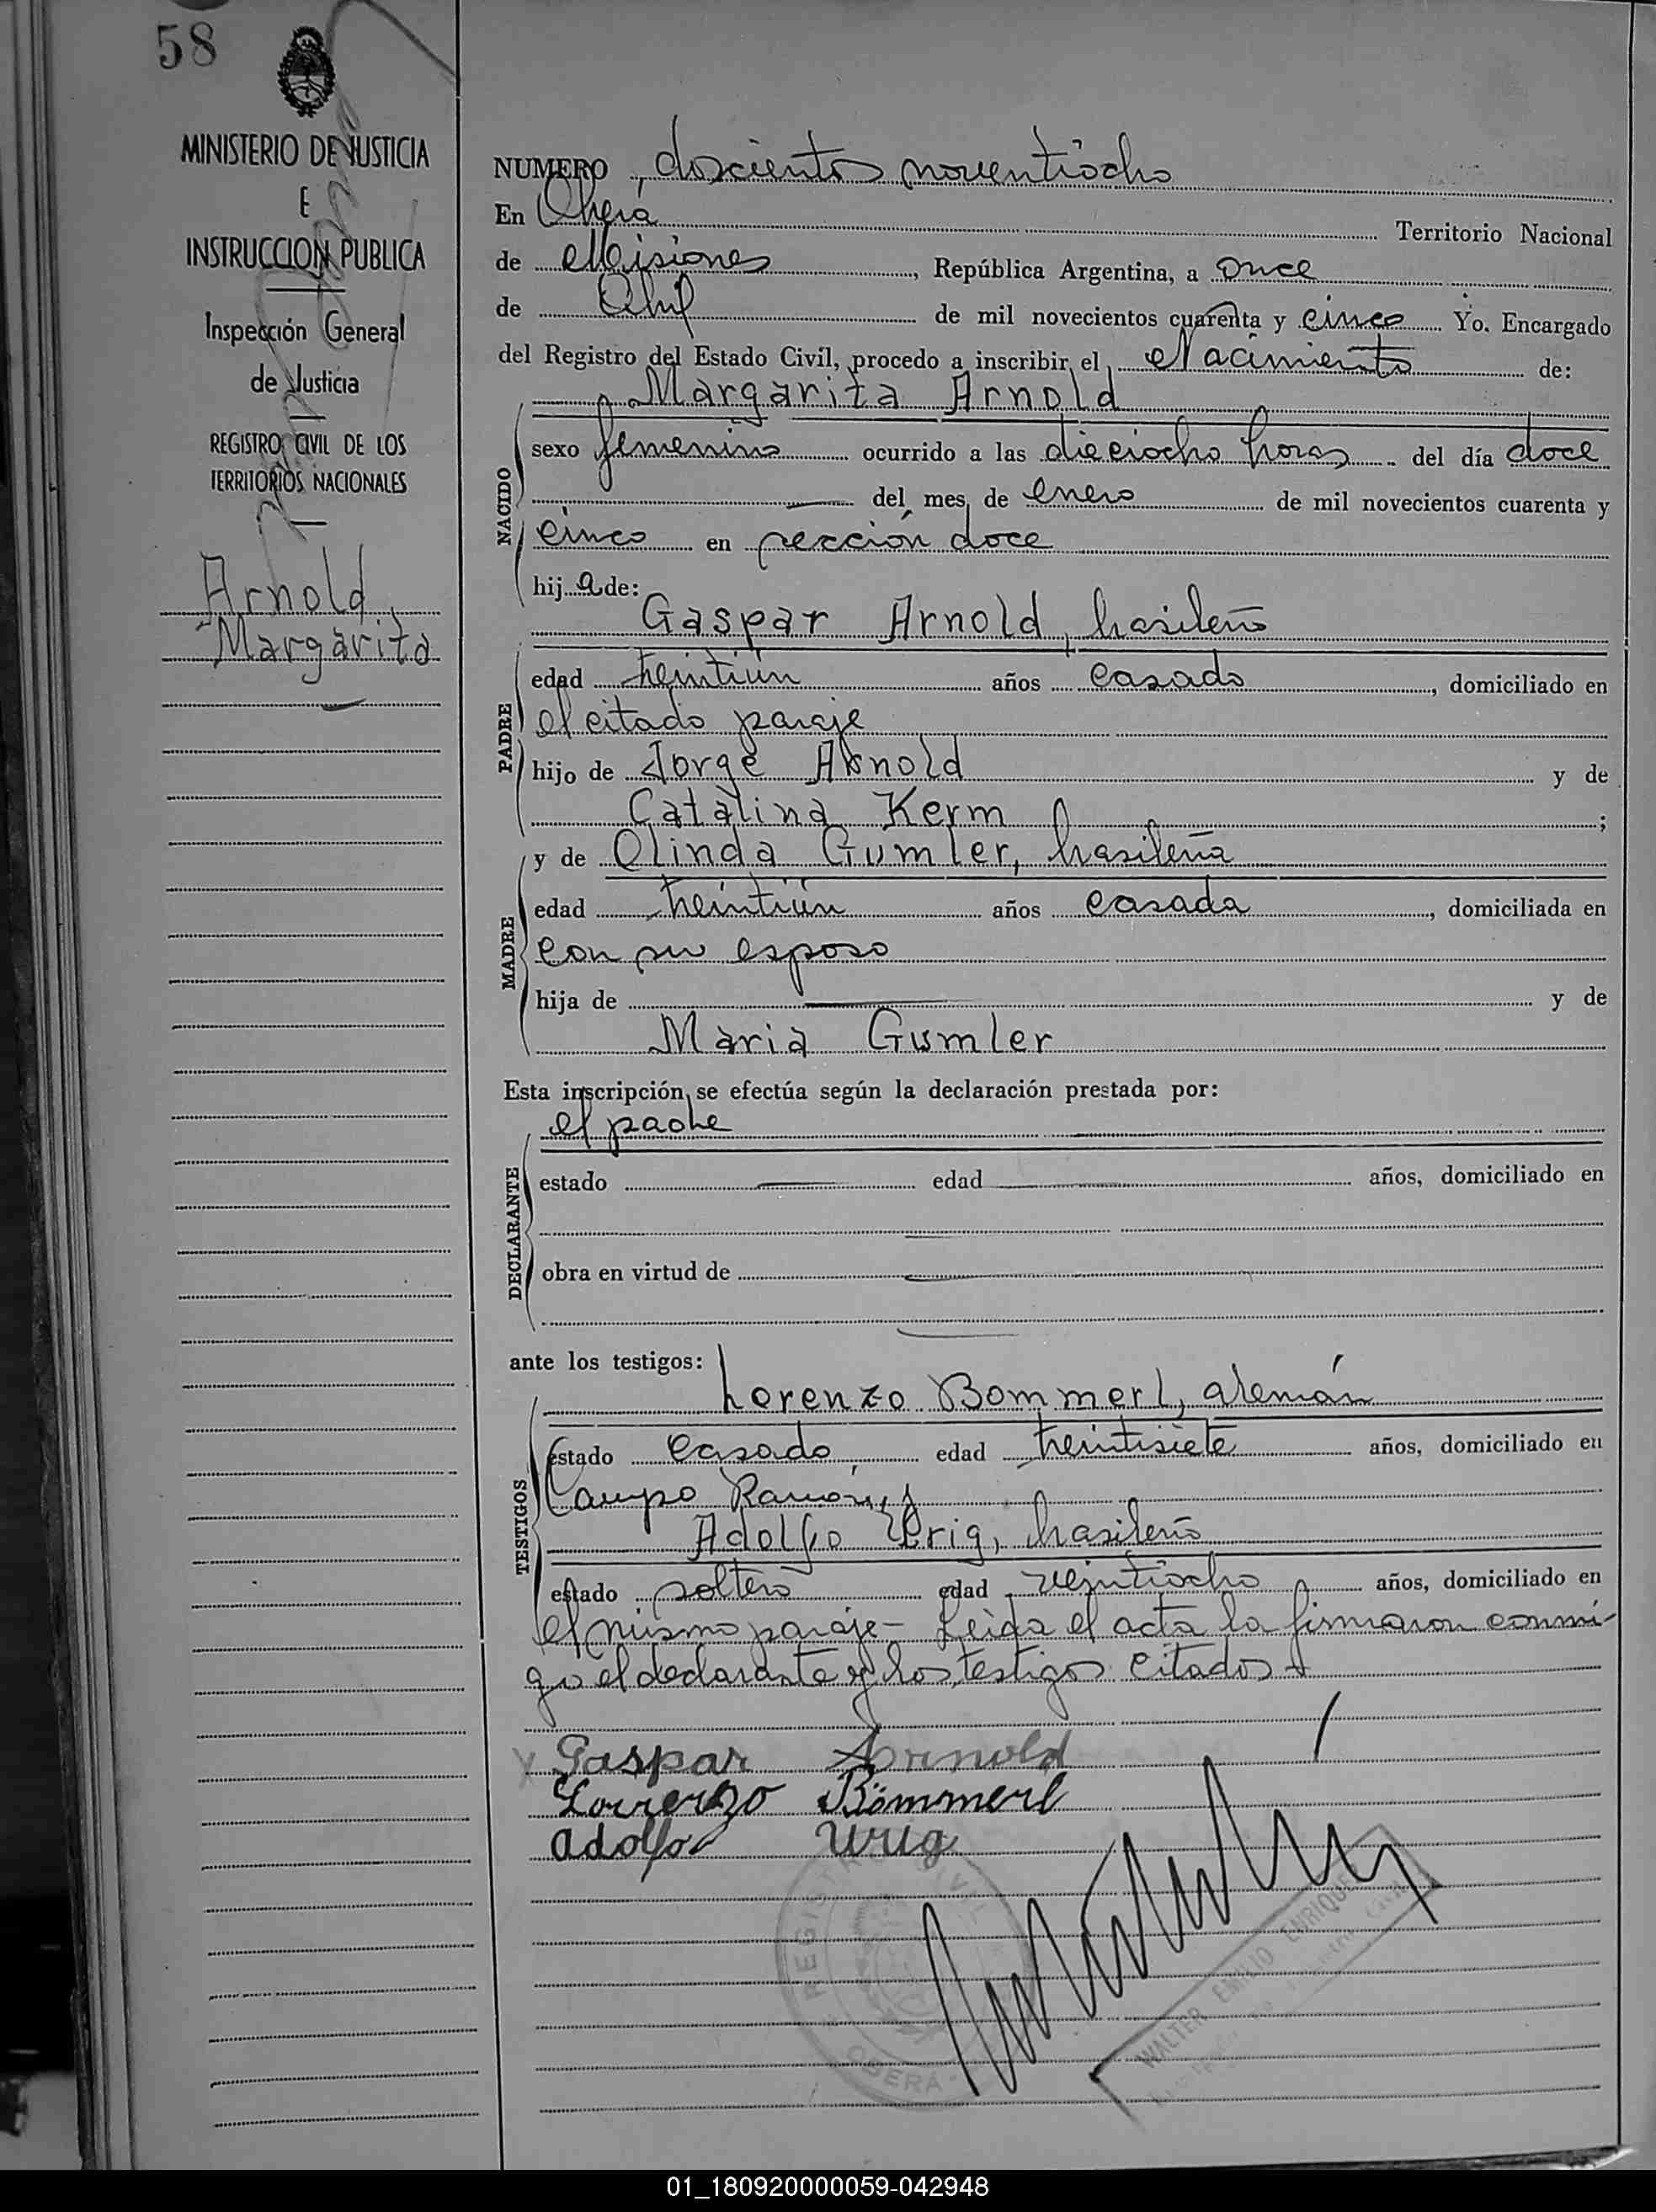 58
MINISTERIO DE JUSTICIA
E
INSTRUCCION PUBLICA
Inspección General
de Justicia
REGISTRO CIVIL DE LOS
TERRITORIOS NACIONALES
Arnold,
Margarita
NUMERO, doscientos noventiocho
En Oberá Territorio Nacional
de Misiones, República Argentina, a once
de Abril de mil novecientos cuarenta y cinco Yo, Encargado
del Registro del Estado Civil, procedo a inscribir el Nacimiento de:
Margarita Arnold
NACIDO
sexo femenino ocurrido a las dieciocho horas del día doce
del mes de enero de mil novecientos cuarenta y
cinco en sección doce
hija de:
Gaspar Arnold, brasileño
PADRE
edad treintiún años casado, domiciliado en
el citado paraje
hijo de Jorge Arnold y de
Catalina Kerm;
y de Olinda Gumler, brasileña
MADRE
edad treintiún años casada, domiciliada en
con su esposo
hija de y de
Maria Gumler
Esta inscripción se efectúa según la declaración prestada por:
el padre
DECLARANTE
estado edad años, domiciliado en
obra en virtud de
ante los testigos:
Lorenzo Bommerl, alemán
TESTIGOS
estado casado edad treintisiete años, domiciliado en
Campo Ramón, y
Adolfo Urig, brasileño
estado soltero edad veintiocho años, domiciliado en
el mismo paraje - Leída el acta la firmaron conmi-
go el declarante y los testigos citados
Gaspar Arnold
Lorrenzo Bömmerl
Adolfo Urig
REGISTRO CIVIL
OBERA
WALTER EMILIO ENRIQUE
01_180920000059-042948